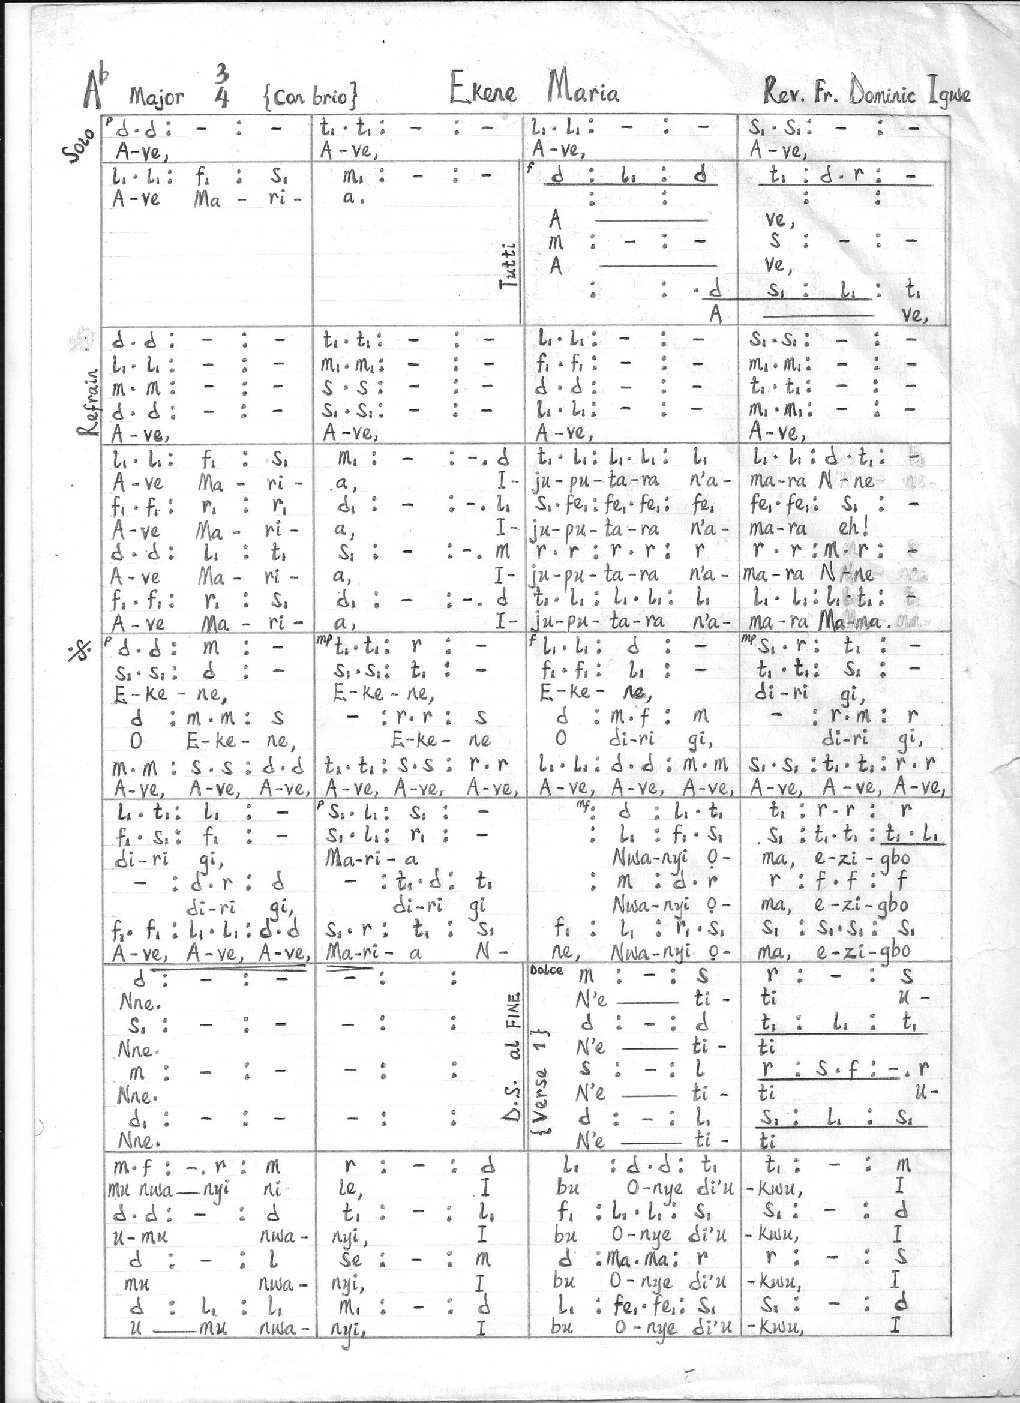 A♭ Major 3/4 {Con brio} Ekene Maria Rev. Fr. Dominic Igwe
Solo
p d.d : - : - t₁.t₁ : - : - l₁.l₁ : - : - s₁.s₁ : - : -
A-ve, A-ve, A-ve, A-ve,
l₁.l₁ : f₁ : s₁ m₁ : - : - f d : l₁ : d t₁ : d.r : -
A-ve Ma - ri - a. : : : :
Tutti
A ve,
m : - : - s : - : -
A ve,
: : .d s₁ : l₁ : t₁
A ve,
Refrain
d.d : - : - t₁.t₁ : - : - l₁.l₁ : - : - s₁.s₁ : - : -
l₁.l₁ : - : - m₁.m₁ : - : - f₁.f₁ : - : - m₁.m₁ : - : -
m.m : - : - s.s : - : - d.d : - : - t₁.t₁ : - : -
d.d : - : - s₁.s₁ : - : - l₁.l₁ : - : - m₁.m₁ : - : -
A-ve, A-ve, A-ve, A-ve,
l₁.l₁ : f₁ : s₁ m₁ : - : -.d t₁.l₁ : l₁.l₁ : l₁ l₁.l₁ : d.t₁ : -
A-ve Ma - ri - a, I- ju-pu-ta-ra n'a- ma-ra N-ne
f₁.f₁ : r₁ : r₁ d₁ : - : -.l₁ s₁.fe₁ : fe₁.fe₁ : fe₁ fe₁.fe₁ : s₁ : -
A-ve Ma - ri - a, I- ju-pu-ta-ra n'a- ma-ra eh!
d.d : l₁ : t₁ s₁ : - : -.m r.r : r.r : r r.r : m.r : -
A-ve Ma - ri - a, I- ju-pu-ta-ra n'a- ma-ra N-ne
f₁.f₁ : r₁ : s₁ d₁ : - : -.d t₁.l₁ : l₁.l₁ : l₁ l₁.l₁ : l₁.t₁ : -
A-ve Ma - ri - a, I- ju-pu-ta-ra n'a- ma-ra Ma-ma.
:S: p d.d : m : - mp t₁.t₁ : r : - f l₁.l₁ : d : - mp s₁.r : t₁ : -
s₁.s₁ : d : - s₁.s₁ : t₁ : - f₁.f₁ : l₁ : - t₁.t₁ : s₁ : -
E-ke-ne, E-ke-ne, E-ke-ne, di-ri gi,
d : m.m : s - : r.r : s d : m.f : m - : r.m : r
O E-ke-ne, E-ke-ne O di-ri gi, di-ri gi,
m.m : s.s : d.d t₁.t₁ : s.s : r.r l₁.l₁ : d.d : m.m s₁.s₁ : t₁.t₁ : r.r
A-ve, A-ve, A-ve, A-ve, A-ve, A-ve, A-ve, A-ve, A-ve, A-ve, A-ve, A-ve,
l₁.t₁ : l₁ : - p s₁.l₁ : s₁ : - mf : d : l₁.t₁ t₁ : r.r : r
f₁.s₁ : f₁ : - s₁.l₁ : r₁ : - : l₁ : f₁.s₁ s₁ : t₁.t₁ : t₁.l₁
di-ri gi, Ma-ri-a Nwa-nyi ọ- ma, e-zi-gbo
- : d.r : d - : t₁.d : t₁ : m : d.r r : f.f : f
di-ri gi, di-ri gi Nwa-nyi ọ- ma, e-zi-gbo
f₁.f₁ : l₁.l₁ : d.d s₁.r : t₁ : s₁ f₁ : l₁ : r₁.s₁ s₁ : s₁.s₁ : s₁
A-ve, A-ve, A-ve, Ma-ri-a N- ne, Nwa-nyi ọ- ma, e-zi-gbo
d : - : - - : : Dolce m : - : s r : - : s
Nne. N'e ti- ti u-
s₁ : - : - - : : d : - : d t₁ : l₁ : t₁
Nne. D.S. al FINE {Verse 1} N'e ti- ti
m : - : - - : : s : - : l r : s.f : -.r
Nne. N'e ti- ti u-
d₁ : - : - - : : d : - : l₁ s₁ : l₁ : s₁
Nne. N'e ti- ti
m.f : -.r : m r : - : d l₁ : d.d : t₁ t₁ : - : m
mu nwa-nyi ni- le, I bu O-nye di'u -kwu, I
d.d : - : d t₁ : - : l₁ f₁ : l₁.l₁ : s₁ s₁ : - : d
u-mu nwa- nyi, I bu O-nye di'u -kwu, I
d : - : l se : - : m d : ma.ma : r r : - : s
mu nwa- nyi, I bu O-nye di'u -kwu, I
d : l₁ : l₁ m₁ : - : d l₁ : fe₁.fe₁ : s₁ s₁ : - : d
u-mu nwa- nyi, I bu O-nye di'u -kwu, I